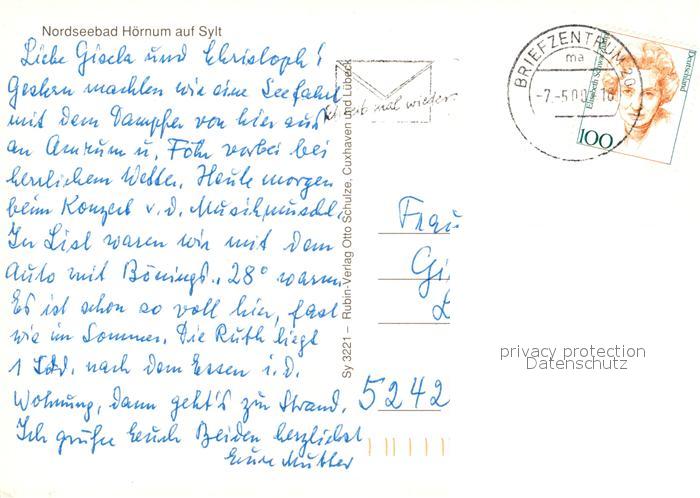 Nordseebad Hörnum auf Sylt
Liebe Gisela und Christoph!
Gestern machten wir eine Seefahrt
mit dem Dampfer von hier aus
an Amrum u. Föhr vorbei bei
herrlichem Wetter. Heute morgen
beim Konzert v. d. Musikmuschel.
In List waren wir mit dem
Auto mit Bönings., 28° warm
Es ist schon so voll hier, fast
wie im Sommer. Die Ruth liegt
1 Std. nach dem Essen i. d.
Wohnung, dann geht's zum Strand.
Ich grüße Euch Beiden herzlichst
Eure Mutter
Sy 3221 – Rubin-Verlag Otto Schulze, Cuxhaven und Lübeck
mal wieder
BRIEFZENTRUM 20
ma
-7.-5.00
Deutschland
Elisabeth Schwarz
100
Frau
Gi
5242
privacy protection
Datenschutz